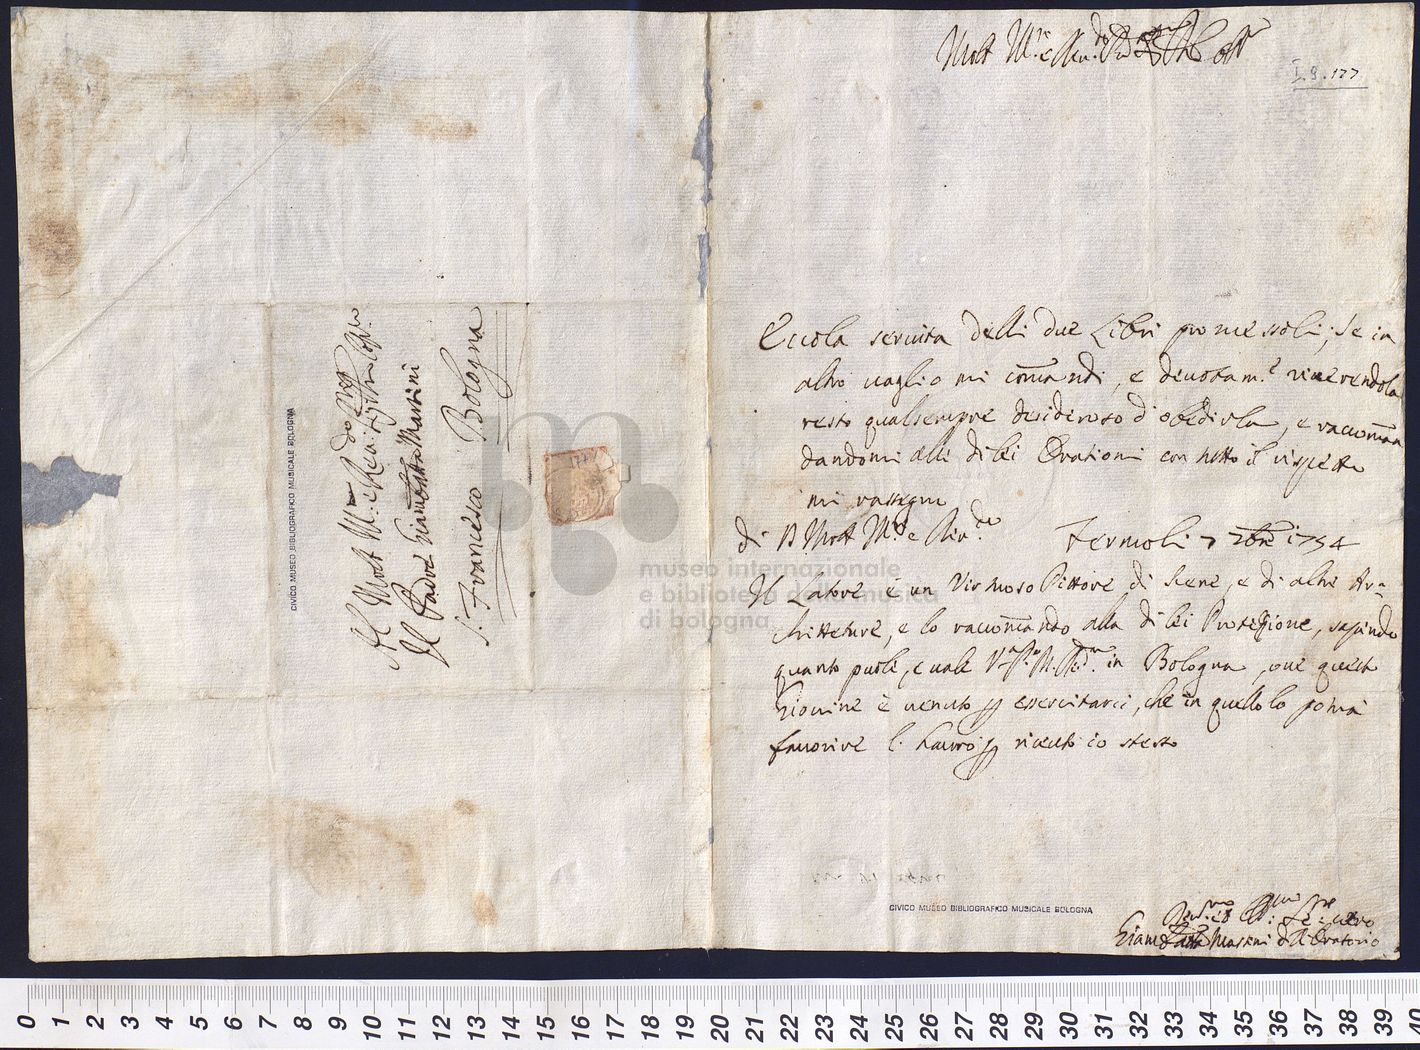 Molt M.re e Rev.do P.re
I.9.177
Eccola servita delli due Libri promessoli; Se in
altro vaglio mi comandi, e devotam.e riverendola
resto qualsempre desideroso d'obedirla, e raccoman
dandomi alli di lei Orationi con tutto il rispetto
mi rassegno
di V Molt M.re e Riv.do
Termoli 7 Xbre 1754
Il Latore è un Virtuoso Pittore di Scene, e di altre Ar-
chitteture, e lo raccomando alla di lei Protezione, sapendo
quanto puole, e vale V.a P.tà M. R.da in Bologna, ove questo
Giovine è venuto per essercitarsi, che in quello lo potrà
favorire l. havrò per ricevuto io stesso
CIVICO MUSEO BIBLIOGRAFICO MUSICALE BOLOGNA
Giamb Masini dell'Oratorio
Al Molt M.re e Rev.do
Il Padre Giambatta Martini
S. Francesco Bologna
CIVICO MUSEO BIBLIOGRAFICO MUSICALE BOLOGNA
museo internazionale
e biblioteca della musica
di bologna
0 1 2 3 4 5 6 7 8 9 10 11 12 13 14 15 16 17 18 19 20 21 22 23 24 25 26 27 28 29 30 31 32 33 34 35 36 37 38 39 40